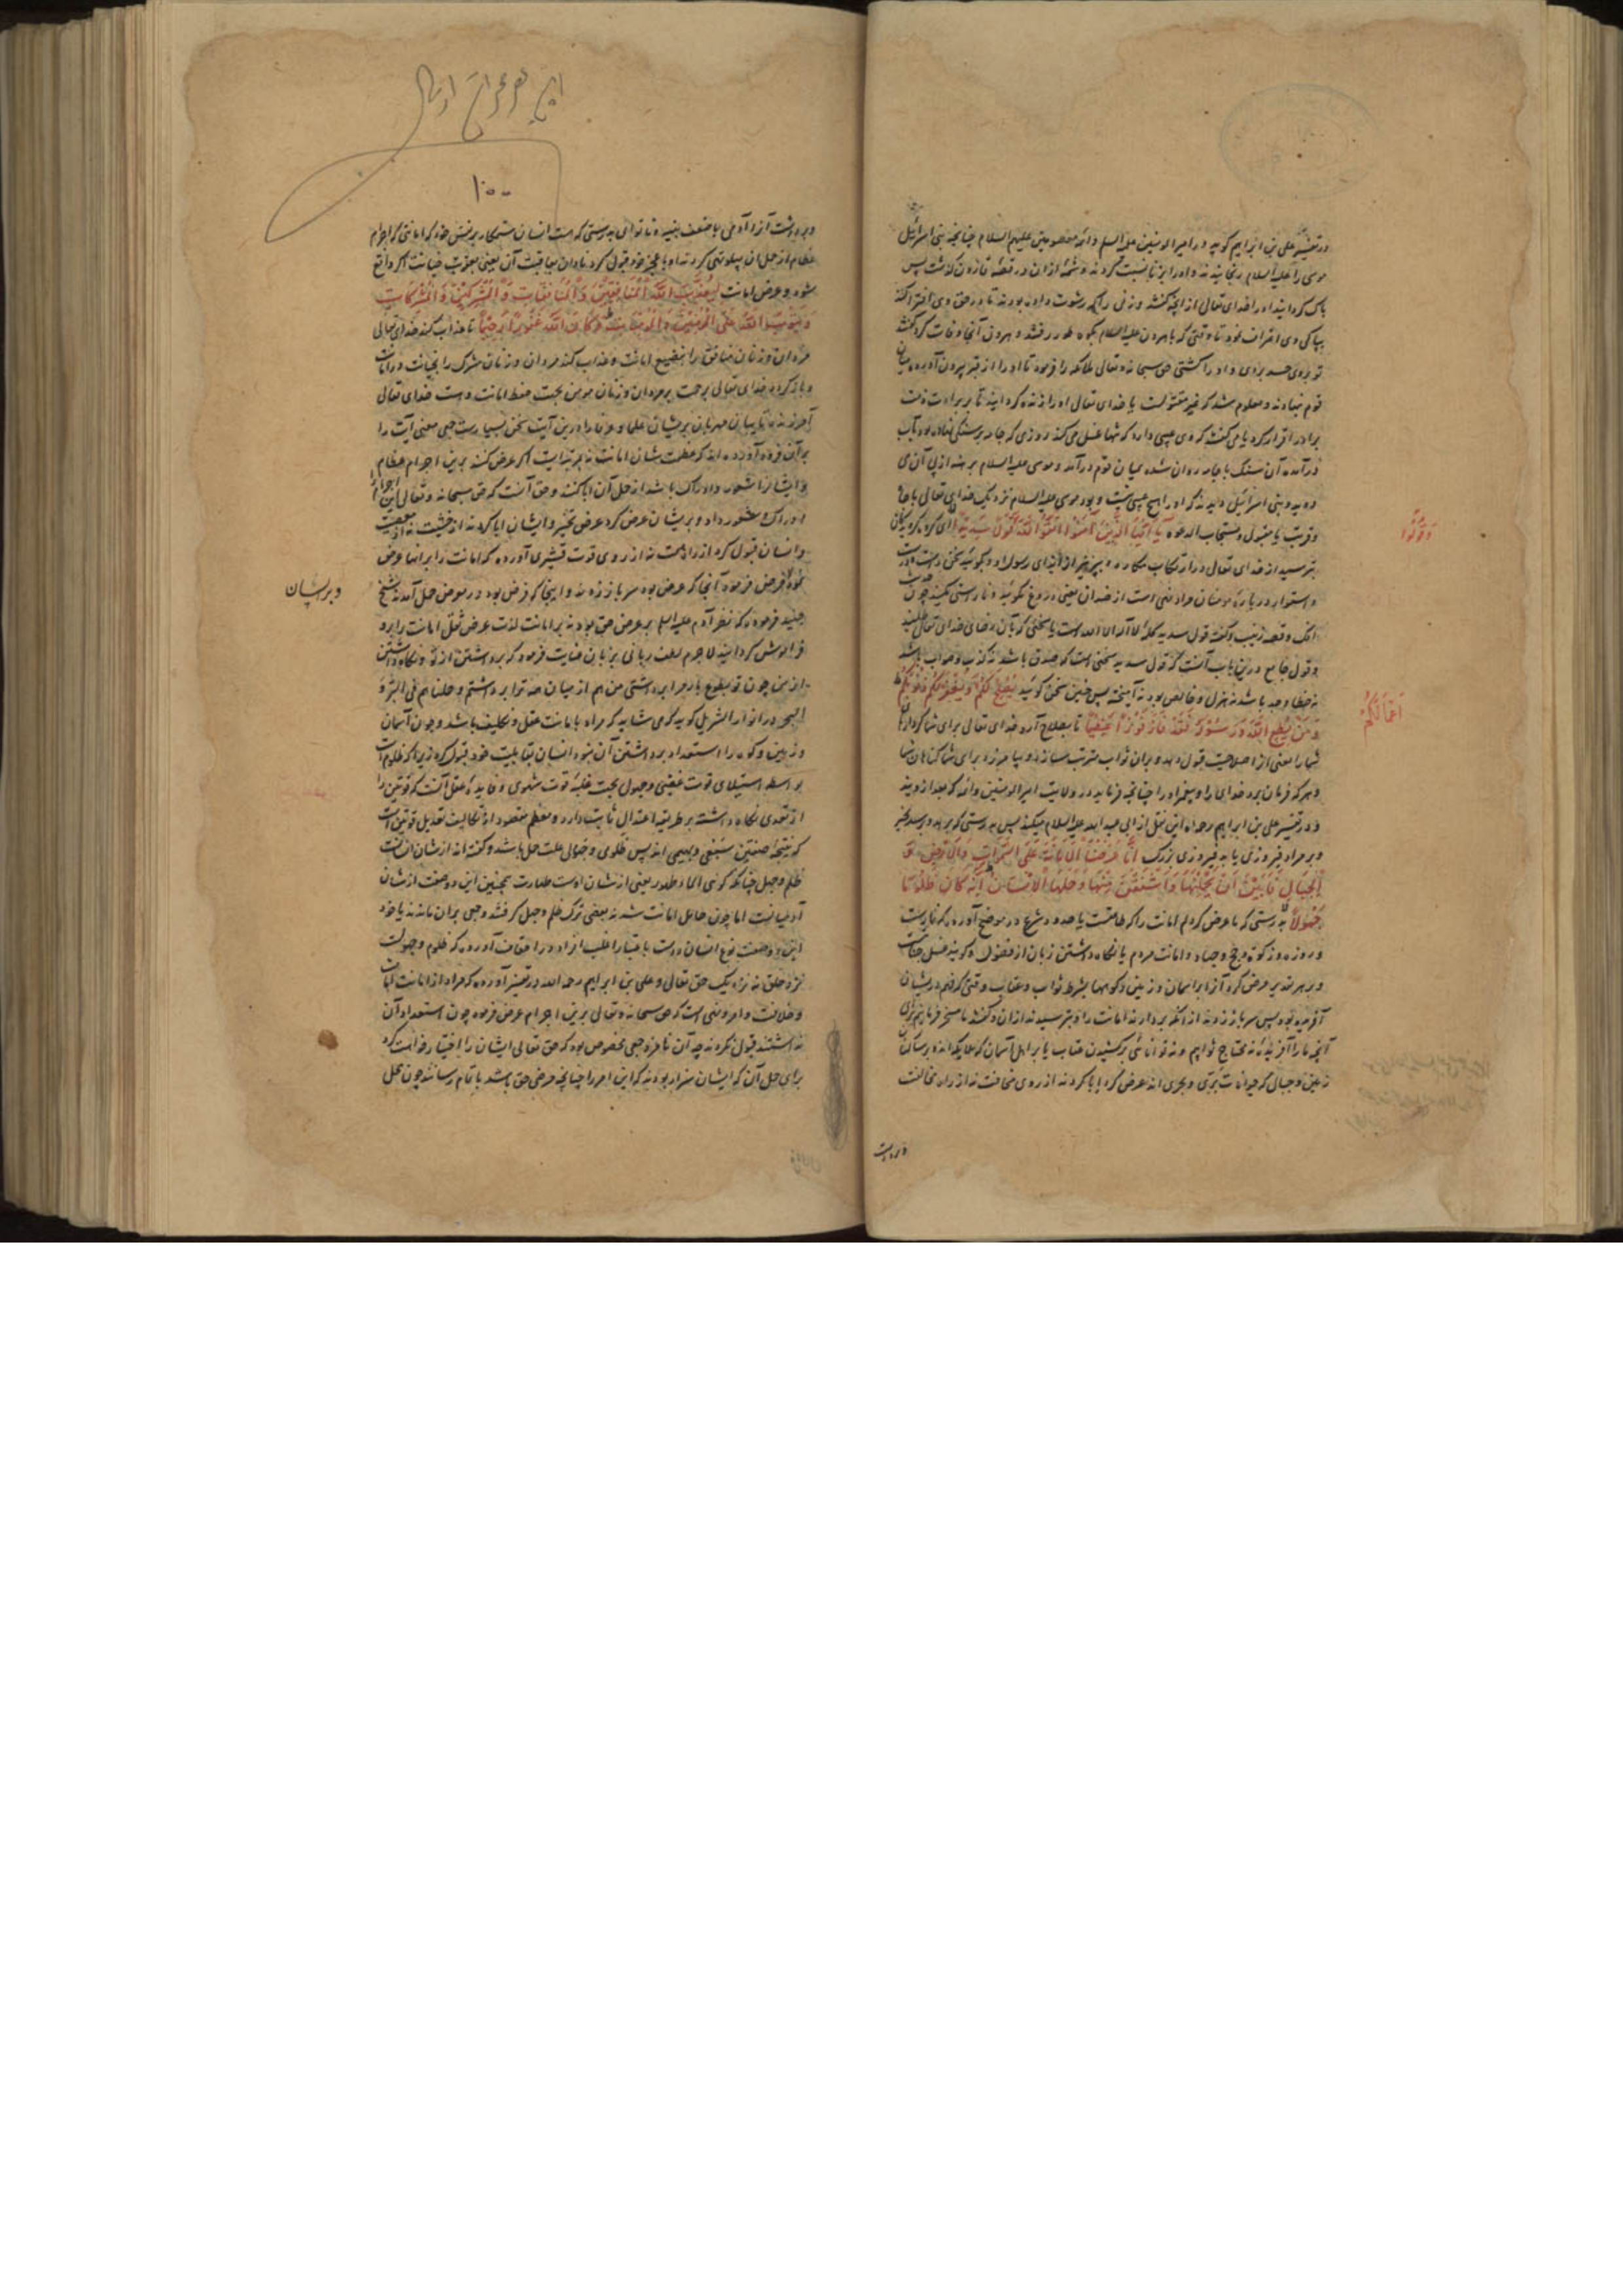 در تفسیر علی بن ابراهیم گوید در امیر المومنین علیه السلام و ائمه معصومین علیهم السلام چنانچه بنی اسرائیل
موسی را علیه السلام رنجانیدند و او را بزنا نسبت کردند و شمهٔ ازان در قصهٔ قارون گذشت پس
پاک گردانید او را خدای تعالی از آنچه گفتند و زنی را که رشوت داده بودند تا در حق وی افترا کند
بپاکی وی اعتراف نمود تا وقتی که با هرون علیه السلام بکوه طور رفتند و هرون آنجا وفات کرد گفتند
تو بروی حسد بردی و او را کشتی حق سبحانه و تعالی ملائکه را فرمود تا او را از قبر بیرون آورده میان
قوم نهادند و معلوم شد که غیر مقتولست یا خدای تعالی او را زنده گردانید تا بر براءت ذمت
برادر اقرار کرد یا می گفتند که وی عیبی دارد که تنها غسل می کند روزی که جامه بر سنگی نهاده بود و بآب
درآمده آن سنگ با جامه روان شده بمیان قوم درآمد و موسی علیه السلام برهنه از پی آن می
دوید و بنی اسرائیل دیدند که او را هیچ عیبی نیست و بود موسی علیه السلام نزدیک خدای تعالی با جاه
و قربت یا مقبول و مستجاب الدعوه یَا أَیُّهَا الَّذِینَ آمَنُوا اتَّقُوا اللَّهَ قَوْلًا سَدِیدًا ای گروه گرویدگان
وَقُولُوا
بترسید از خدای تعالی در ارتکاب مکاره و بپرهیز از ایذای رسول او و بگوئید سخن راست و درست
و استوار درباره مومنان مراد نهی است از ضد آن یعنی دروغ نگوئید و ناراستی مکنید چون
افک و قصه زینب و گفته قول سدید کلمه لا اله الا الله است یا سخنی که بآن رضای خدای تعالی طلبند
و قول جامع درین باب آنست که قول سدید سخنی است که صدق باشد نه کذب و صواب باشد
نه خطا و جد باشد نه هزل و خالص بود نه آمیخته پس چنین سخن گوئید یُصْلِحْ لَکُمْ وَیَغْفِرْ لَکُمْ ذُنُوبَکُمْ
أَعْمَالَکُمْ
وَمَنْ یُطِعِ اللَّهَ وَرَسُولَهُ فَقَدْ فَازَ فَوْزًا عَظِیمًا تا بصلاح آرد خدای تعالی برای شما کردارهای
شما را یعنی از اصلاحیت قبول دهد و بران ثواب مترتب سازد و بیامرزد برای شما گناهان شما
و هرکه فرمان برد خدای را و پیغمبر او را چنانچه فرماید در ولایت امیر المومنین و ائمه که بعد از ویند
و در تفسیر علی بن ابراهیم رحمه الله این نقل از ابی عبد الله علیه السلام میکند پس بدرستی که برهد و برسد بخیر
و بر مراد فیروزی یابد فیروزی بزرگ إِنَّا عَرَضْنَا الْأَمَانَةَ عَلَی السَّمَوَاتِ وَالْأَرْضِ وَ
الْجِبَالِ فَأَبَیْنَ أَنْ یَحْمِلْنَهَا وَأَشْفَقْنَ مِنْهَا وَحَمَلَهَا الْإِنْسَانُ إِنَّهُ کَانَ ظَلُومًا
جَهُولًا بدرستی که ما عرض کردیم امانت را که طاعتست یا حدود شرع در موضح آورده که نمازست
و روزه و زکوة و حج و جهاد و امانت مردم یا نگاه داشتن زبان از فضول و گویند غسل جنابت
و بهر تقدیر عرض کرد آنرا بر آسمان و زمین و کوهها بشرط ثواب و عقاب وقتی که فهم در ایشان
آفریده بود پس سر باز زدند از آنکه بردارند امانت را و بترسیدند ازان و گفتند ما مسخر فرمانیم برای
آنچه ما را آفریدهٔ نه محتاج ثوابیم و نه توانائی بر کشیدن عقاب یا بر اهل آسمان که ملایکه اند و بر ساکنان
زمین و جبال که حیوانات بری و بحری اند عرض کرد ابا کردند از روی مخافت نه از راه مخالفت
و برداشت
۱۰۰
و برداشت آنرا آدمی با ضعف بنیه و ناتوانی بدرستی که هست انسان ستمکار بر نفس خود که امانتی که اجرام
عظام از حمل ان پهلو تهی کردند او با عجز خود قبول کرد نادان بعاقبت آن یعنی بعقوبت خیانت اگر واقع
شود و عرض امانت لِیُعَذِّبَ اللَّهُ الْمُنَافِقِینَ وَالْمُنَافِقَاتِ وَالْمُشْرِکِینَ وَالْمُشْرِکَاتِ
وَیَتُوبَ اللَّهُ عَلَی الْمُؤْمِنِینَ وَالْمُؤْمِنَاتِ وَکَانَ اللَّهُ غَفُورًا رَحِیمًا تا عذاب کند خدای تعالی
مردان و زنان منافق را بتضییع امانت و عذاب کند مردان و زنان مشرک را بخیانت در امانت
و باز گردد خدای تعالی برحمت بر مردان و زنان مومن بجهت حفظ امانت و هست خدای تعالی
آمرزنده تایبان مهربان بریشان علما و عرفا را درین آیت سخن بسیارست جمعی معنی آیت را
بران فرود آورده اند که عظمت شان امانت بمرتبه ایست که اگر عرض کنند برین اجرام عظام
و ایشانرا شعور و ادراک باشد از حمل آن ابا کنند و حق آنست که حق سبحانه و تعالی این اجرام را
ادراک و شعور داد و بریشان عرض کرد عرض تخییر و ایشان ابا کردند از خشیت نه از معصیت
و انسان قبول کرد از راه همت نه از روی قوت قشیری آورده که امانت را برانها عرض
نمود و فرض فرمود آنجا که عرض بود سر باز زدند و اینجا که فرض بود در معرض حمل آمدند شیخ
و بر انسان
جنید فرموده که نظر آدم علیه السلم بر عرض حق بود نه بر امانت لذت عرض ثقل امانت را برو
فراموش گردانید لاجرم لطف ربانی بزبان عنایت فرمود که برداشتن از تو و نگاه داشتن
از من چون تو بطوع بار مرا برداشتی من هم از میان همه ترا برداشتم و حملناهم فی البر و
البحر در انوار التنزیل گوید که می شاید که مراد بامانت عقل و تکلیف باشد و چون آسمان
و زمین و کوه را استعداد برداشتن آن نبود انسان بقابلیت خود قبول کرد زیرا که ظلوم است
بواسطه استیلای قوت غضبی و جهول بجهت غلبه قوت شهوی و فایدهٔ عقل آنست که قوتین را
از تعدی نگاه داشته بر طریقه اعتدال ثابت دارد و معظم مقصود از تکالیف تعدیل قوتین است
که نتیجهٔ صفتین سبعی و بهیمی اند پس ظلومی و جهولی علت حمل باشد و گفته اند از شان انسانست
ظلم و جهل چنانکه گوئی الماء طهور یعنی از شان اوست طهارت همچنین این دو صفت از شان
آدمیانست اما چون حامل امانت شدند بعضی ترک ظلم و جهل گرفتند و جمعی بران ماندند یا خود
این دو صفت نوع انسان هست باعتبار اغلب افراد در احقاف آورده که ظلوم و جهولست
نزد خلق نه نزدیک حق تعالی و علی بن ابراهیم رحمه الله در تفسیر آورده که مراد از امانت امامت
و خلافت و امر و نهی است که حق سبحانه و تعالی برین اجرام عرض فرمود چون استعداد آن
نداشتند قبول نکردند چه آن نامزد جمعی مخصوص بود که حق تعالی ایشان را اختیار خواست کرد
برای حمل آن که ایشان سزاوار بودند که این امر را چنانچه مرضی حق باشد باتمام رسانند چون محل